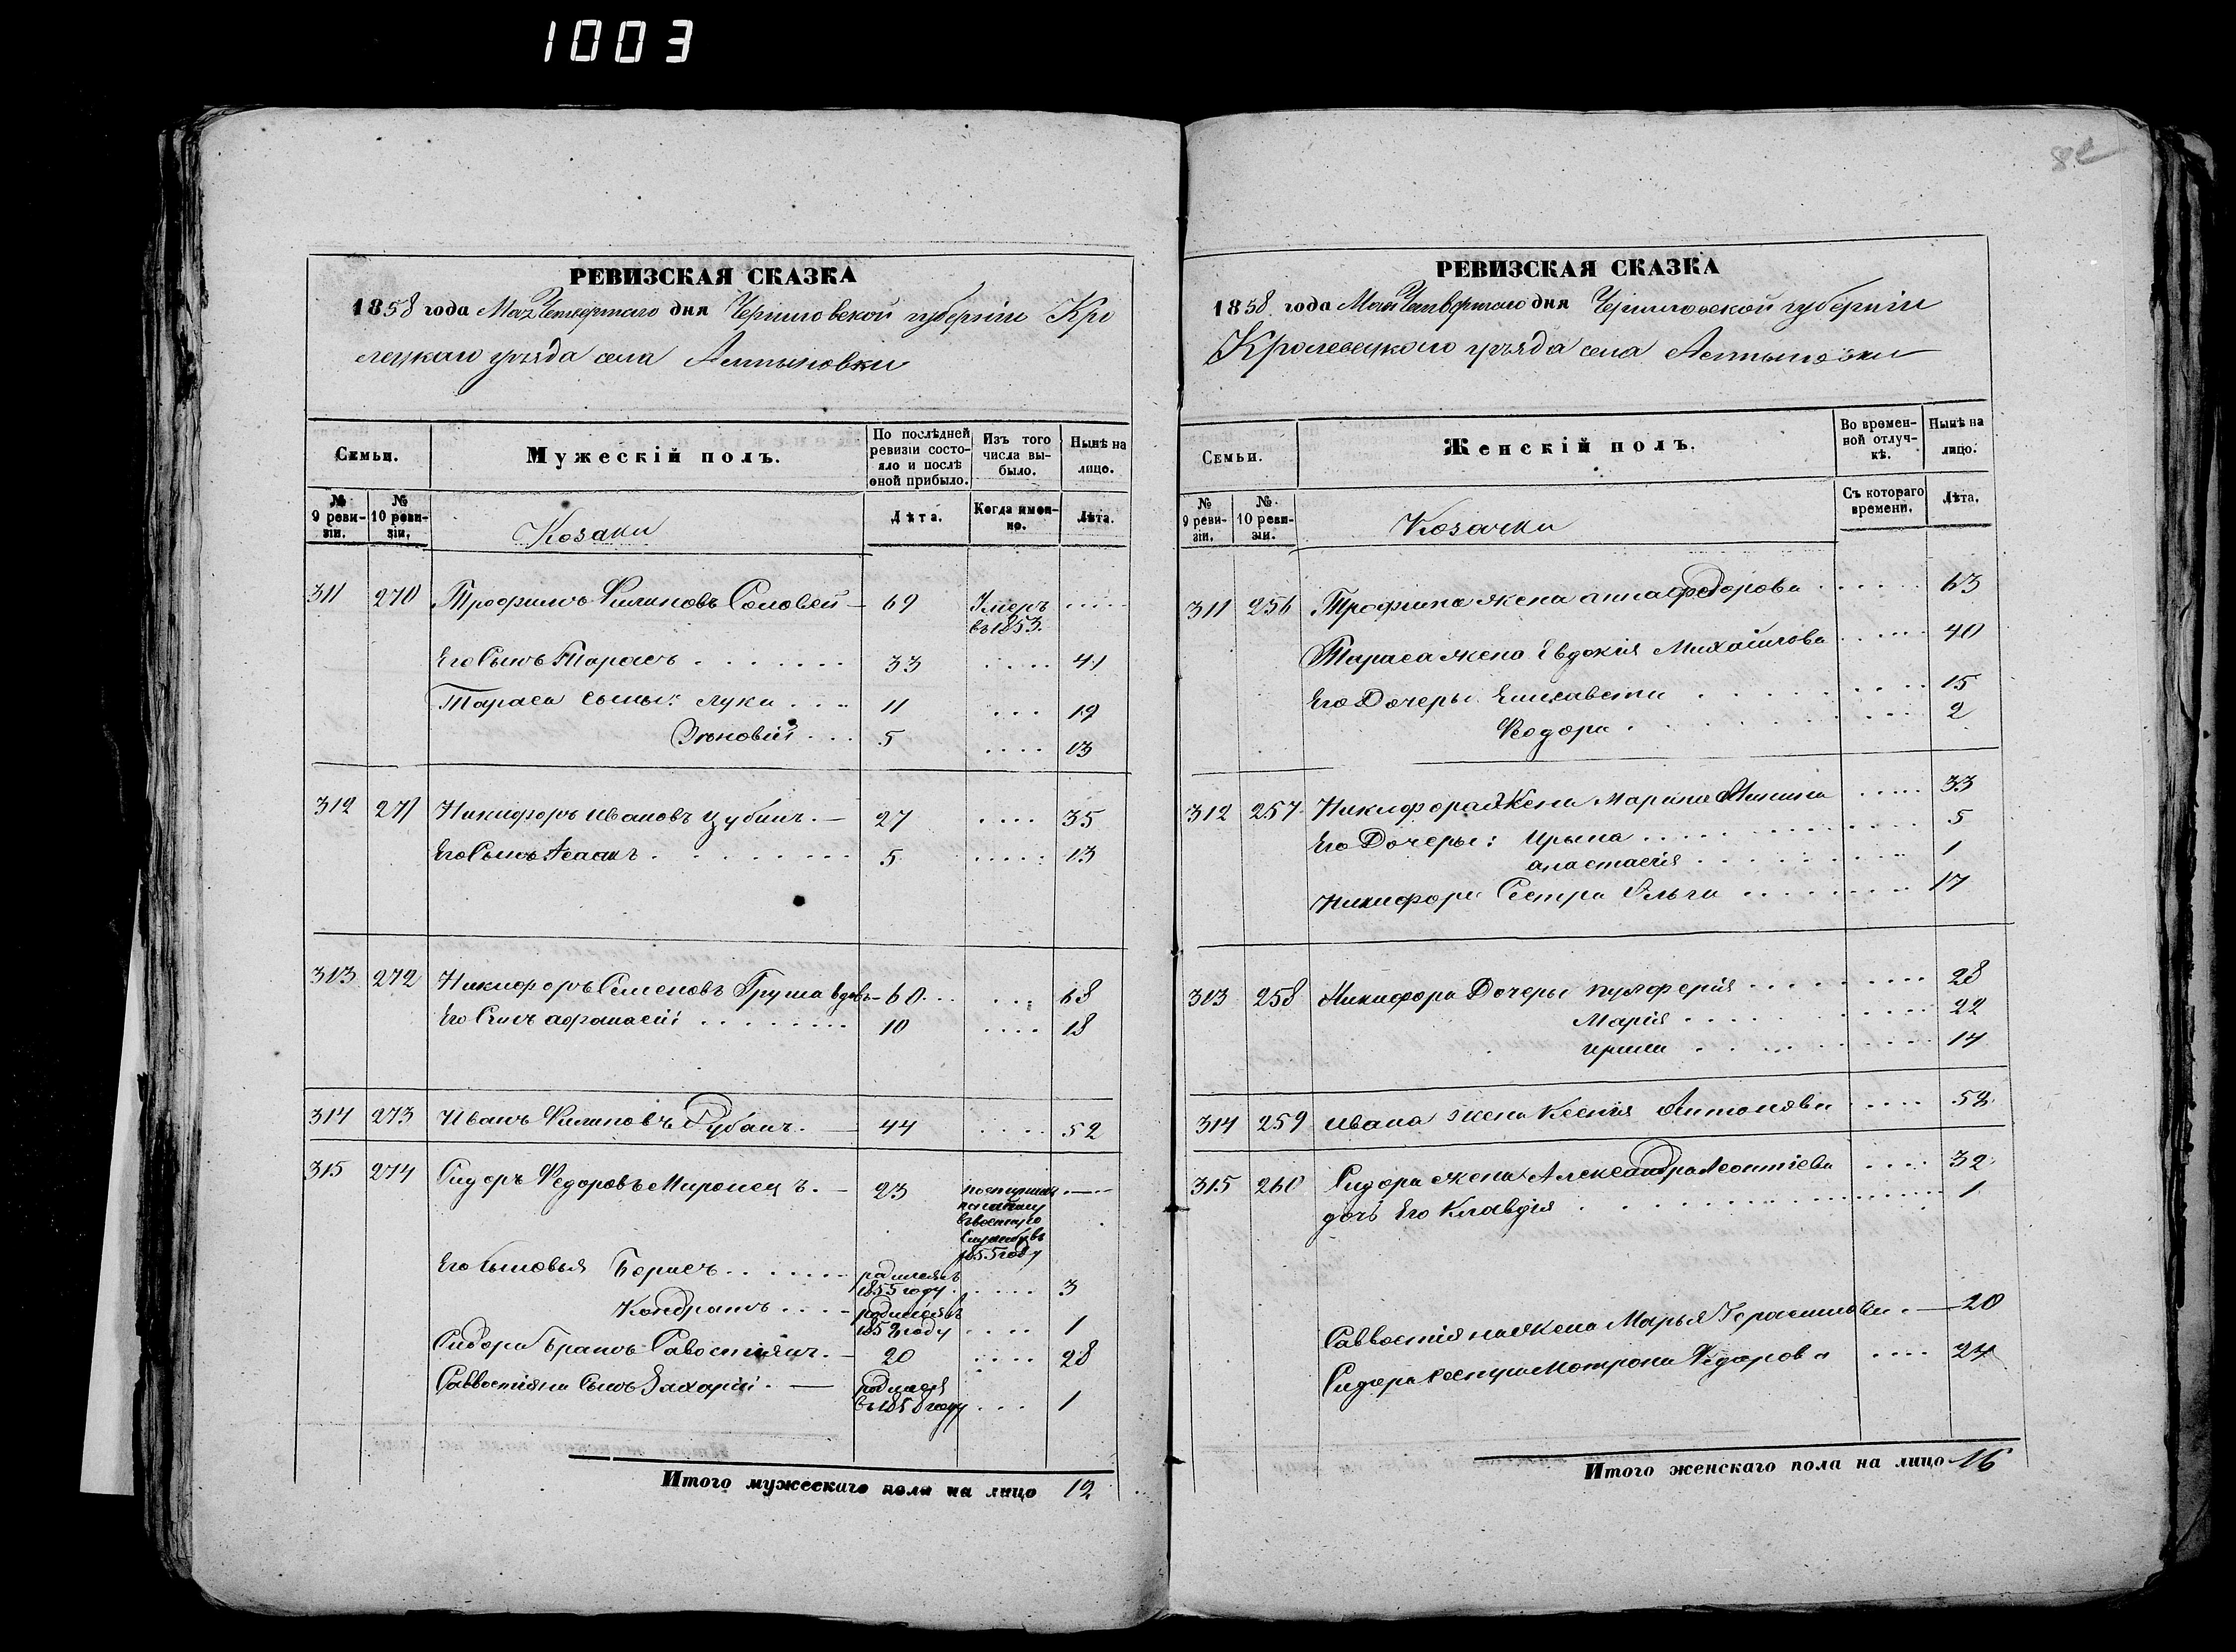 1003
РЕВИЗСКАЯ СКАЗКА
1858 года Мая Четвертаго дня Черниговской губерніи Кро
лецкаго уезда села Алтыновки
Семьи.
Мужескій полъ.
По послѣдней ревизіи состояло и послѣ оной прибыло.
Изъ того числа выбыло.
Нынѣ на лицо.
№ 9 ревизіи.
№ 10 ревизіи.
Козаки
Лѣта.
Когда именно.
Лѣта.
311 270 Трофимъ Филиповъ Соловей 69 Умеръ
въ 1853.
Его Сынъ Тарасъ 33 41
Тараса сыны: Лука 11 19
Зѣновій 5 13
312 271 Никифоръ Ивановъ 27 35
Его Сынъ Исаакъ 5 13
313 272 Никифоръ Семеновъ Груша вдовъ 60 68
Его Сынъ Афанасій 10 18
314 273 Иванъ Филиповъ Рубанъ 44 52
315 274 Сидоръ Федоровъ Миронецъ 23 поступилъ
въ военную
службу въ
1855 году
Его Сыновья Борисъ родился въ
1855 году 3
Кондратъ родился въ
году 1
Сидора Братъ Савостіянъ 20 28
Саввостіяна Сынъ Захарій родился
въ 1858 году 1
Итого мужескаго пола на лицо 12
РЕВИЗСКАЯ СКАЗКА
1858 года Мая Четвертаго дня Черниговской губерніи
Кролевецкого уезда села Алтыновки
Семьи.
Женскій полъ.
Во временной отлучкѣ.
Нынѣ на лицо.
№ 9 ревизіи.
№ 10 ревизіи.
Козачки
Съ котораго времени.
Лѣта.
311 256 Трофима жена Анна Федорова 63
Тараса жена Евдокія Михайлова 40
Его Дочеры Елисавета 15
Феодора 2
312 257 Никифора Жена Марина 33
Его Дочеры: Ирына 5
Анастасія 1
Никифора Сестра Ольга 17
313 258 Никифора Дочеры Пулферія 28
Марія 22
Ирина 14
314 259 Ивана жена Ксенія Антонова 52
315 260 Сидора жена Александра Леонтіева 32
дочь Его Клавдія 1
Саввостіяна Жена Марья Герасимова 20
Сидора Сестра Мотрона Федорова 24
Итого женскаго пола на лицо 16